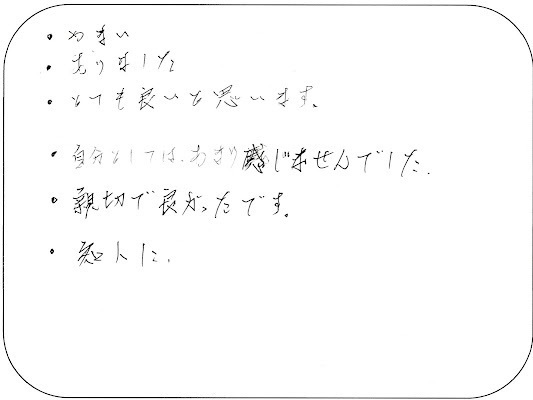 ・やすい
・売りました
・とても良いと思います。
・自分としては、あまり感じませんでした.
・親切で良かったです。
・知人に.